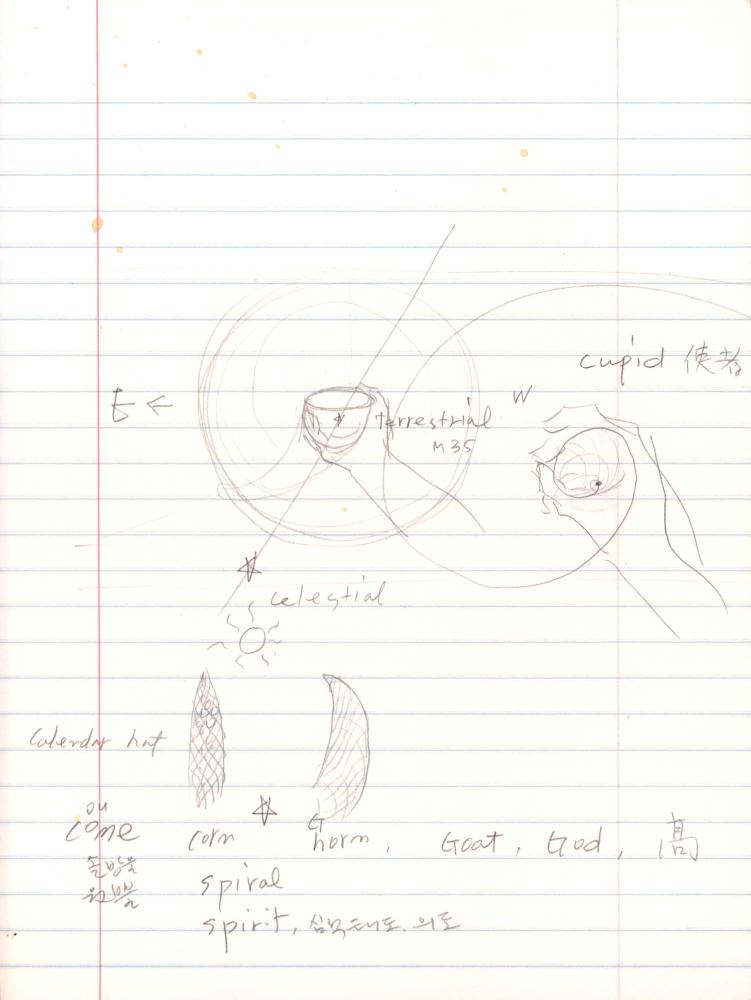 cupid 使者
E ← W
terrestrial
M35
celestial
calendar hat
ou
come corn horn, Goat, God, 高
G
솔방울 spiral
원뿔
spirit, 의도